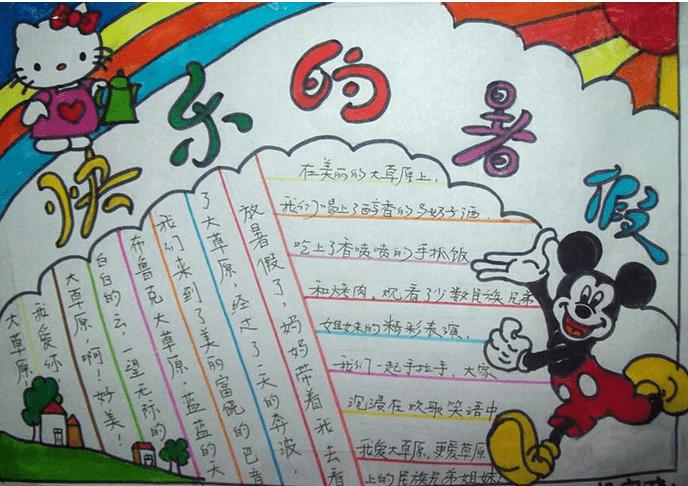 快乐的暑假
放暑假了，妈妈带着我去看
了大草原，经过了一天的奔波，
我们来到了美丽富饶的巴音
布鲁克大草原，蓝蓝的天
白白的云，一望无际的
大草原，啊！好美！
我爱你
大草原
在美丽的大草原上，
我们喝上了醇香的马奶子酒，
吃上了香喷喷的手抓饭
和烤肉，观看了少数民族兄弟
姐妹的精彩表演，
我们一起手拉手，大家
沉浸在欢歌笑语中
我爱大草原，更爱草原
上的民族兄弟姐妹